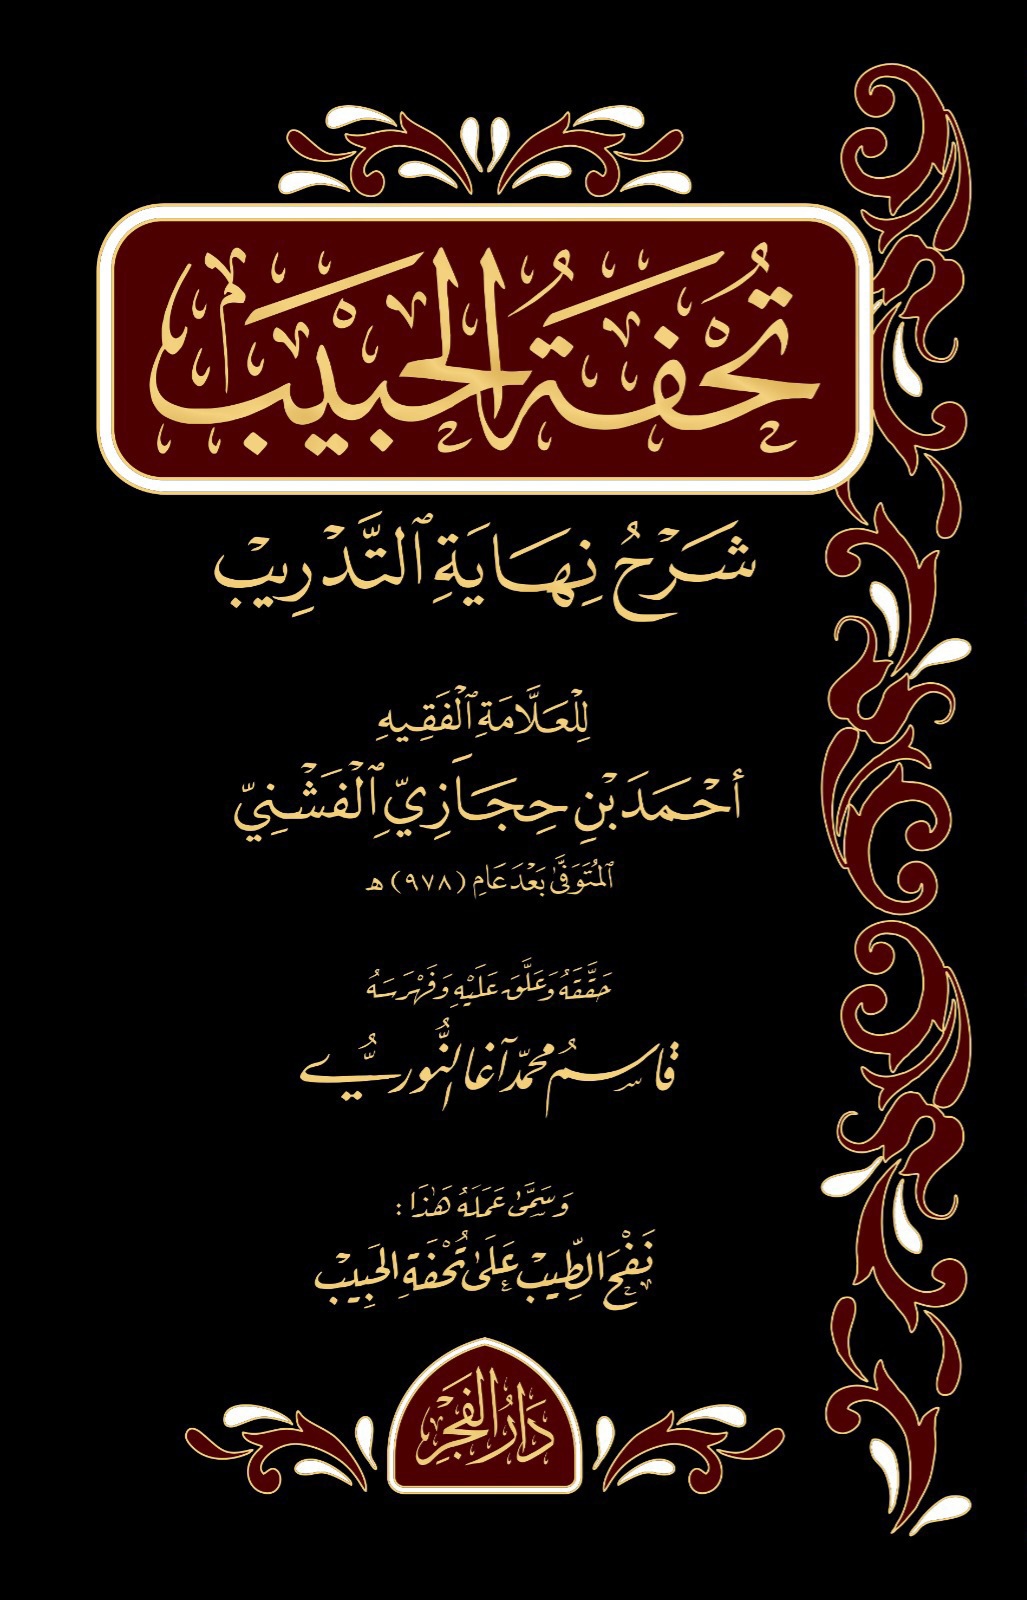 تُحْفَةُ الْحَبِيْبِ
شَرْحُ نِهَايَةِ ٱلتَّدْرِيْبِ
لِلْعَلَّامَةِ ٱلْفَقِيهِ
أَحْمَدَ بْنِ حِجَازِيِّ ٱلْفَشْنِيِّ
ٱلْمُتَوَفَّىٰ بَعْدَ عَامِ (٩٧٨) هـ
حَقَّقَهُ وَعَلَّقَ عَلَيْهِ وَفَهْرَسَهُ
قَاسِمُ مُحَمَّد آغَا النُّورِيُّ
وَسَمَّىٰ عَمَلَهُ هَٰذَا :
نَفْحَ الطِّيبْ عَلَىٰ تُحْفَةِ الْحَبِيبْ
دَارُ الْفَجْرِ